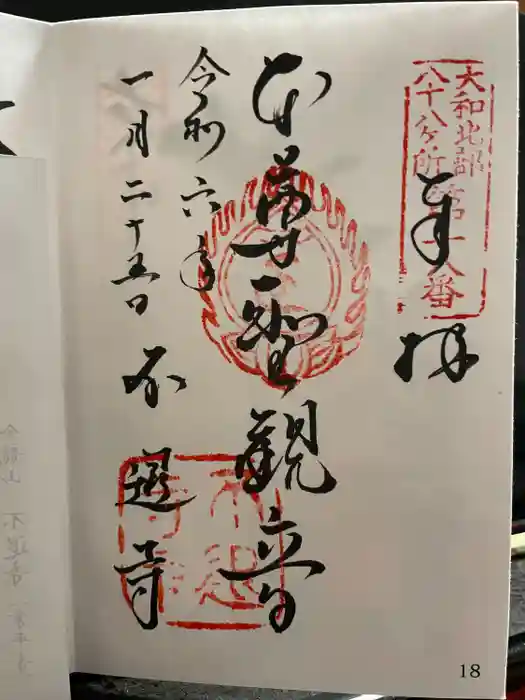 大和北部
八十八ヶ所第十八番
奉拝
本尊聖観音
令和六年
一月二十五日
不退寺
18